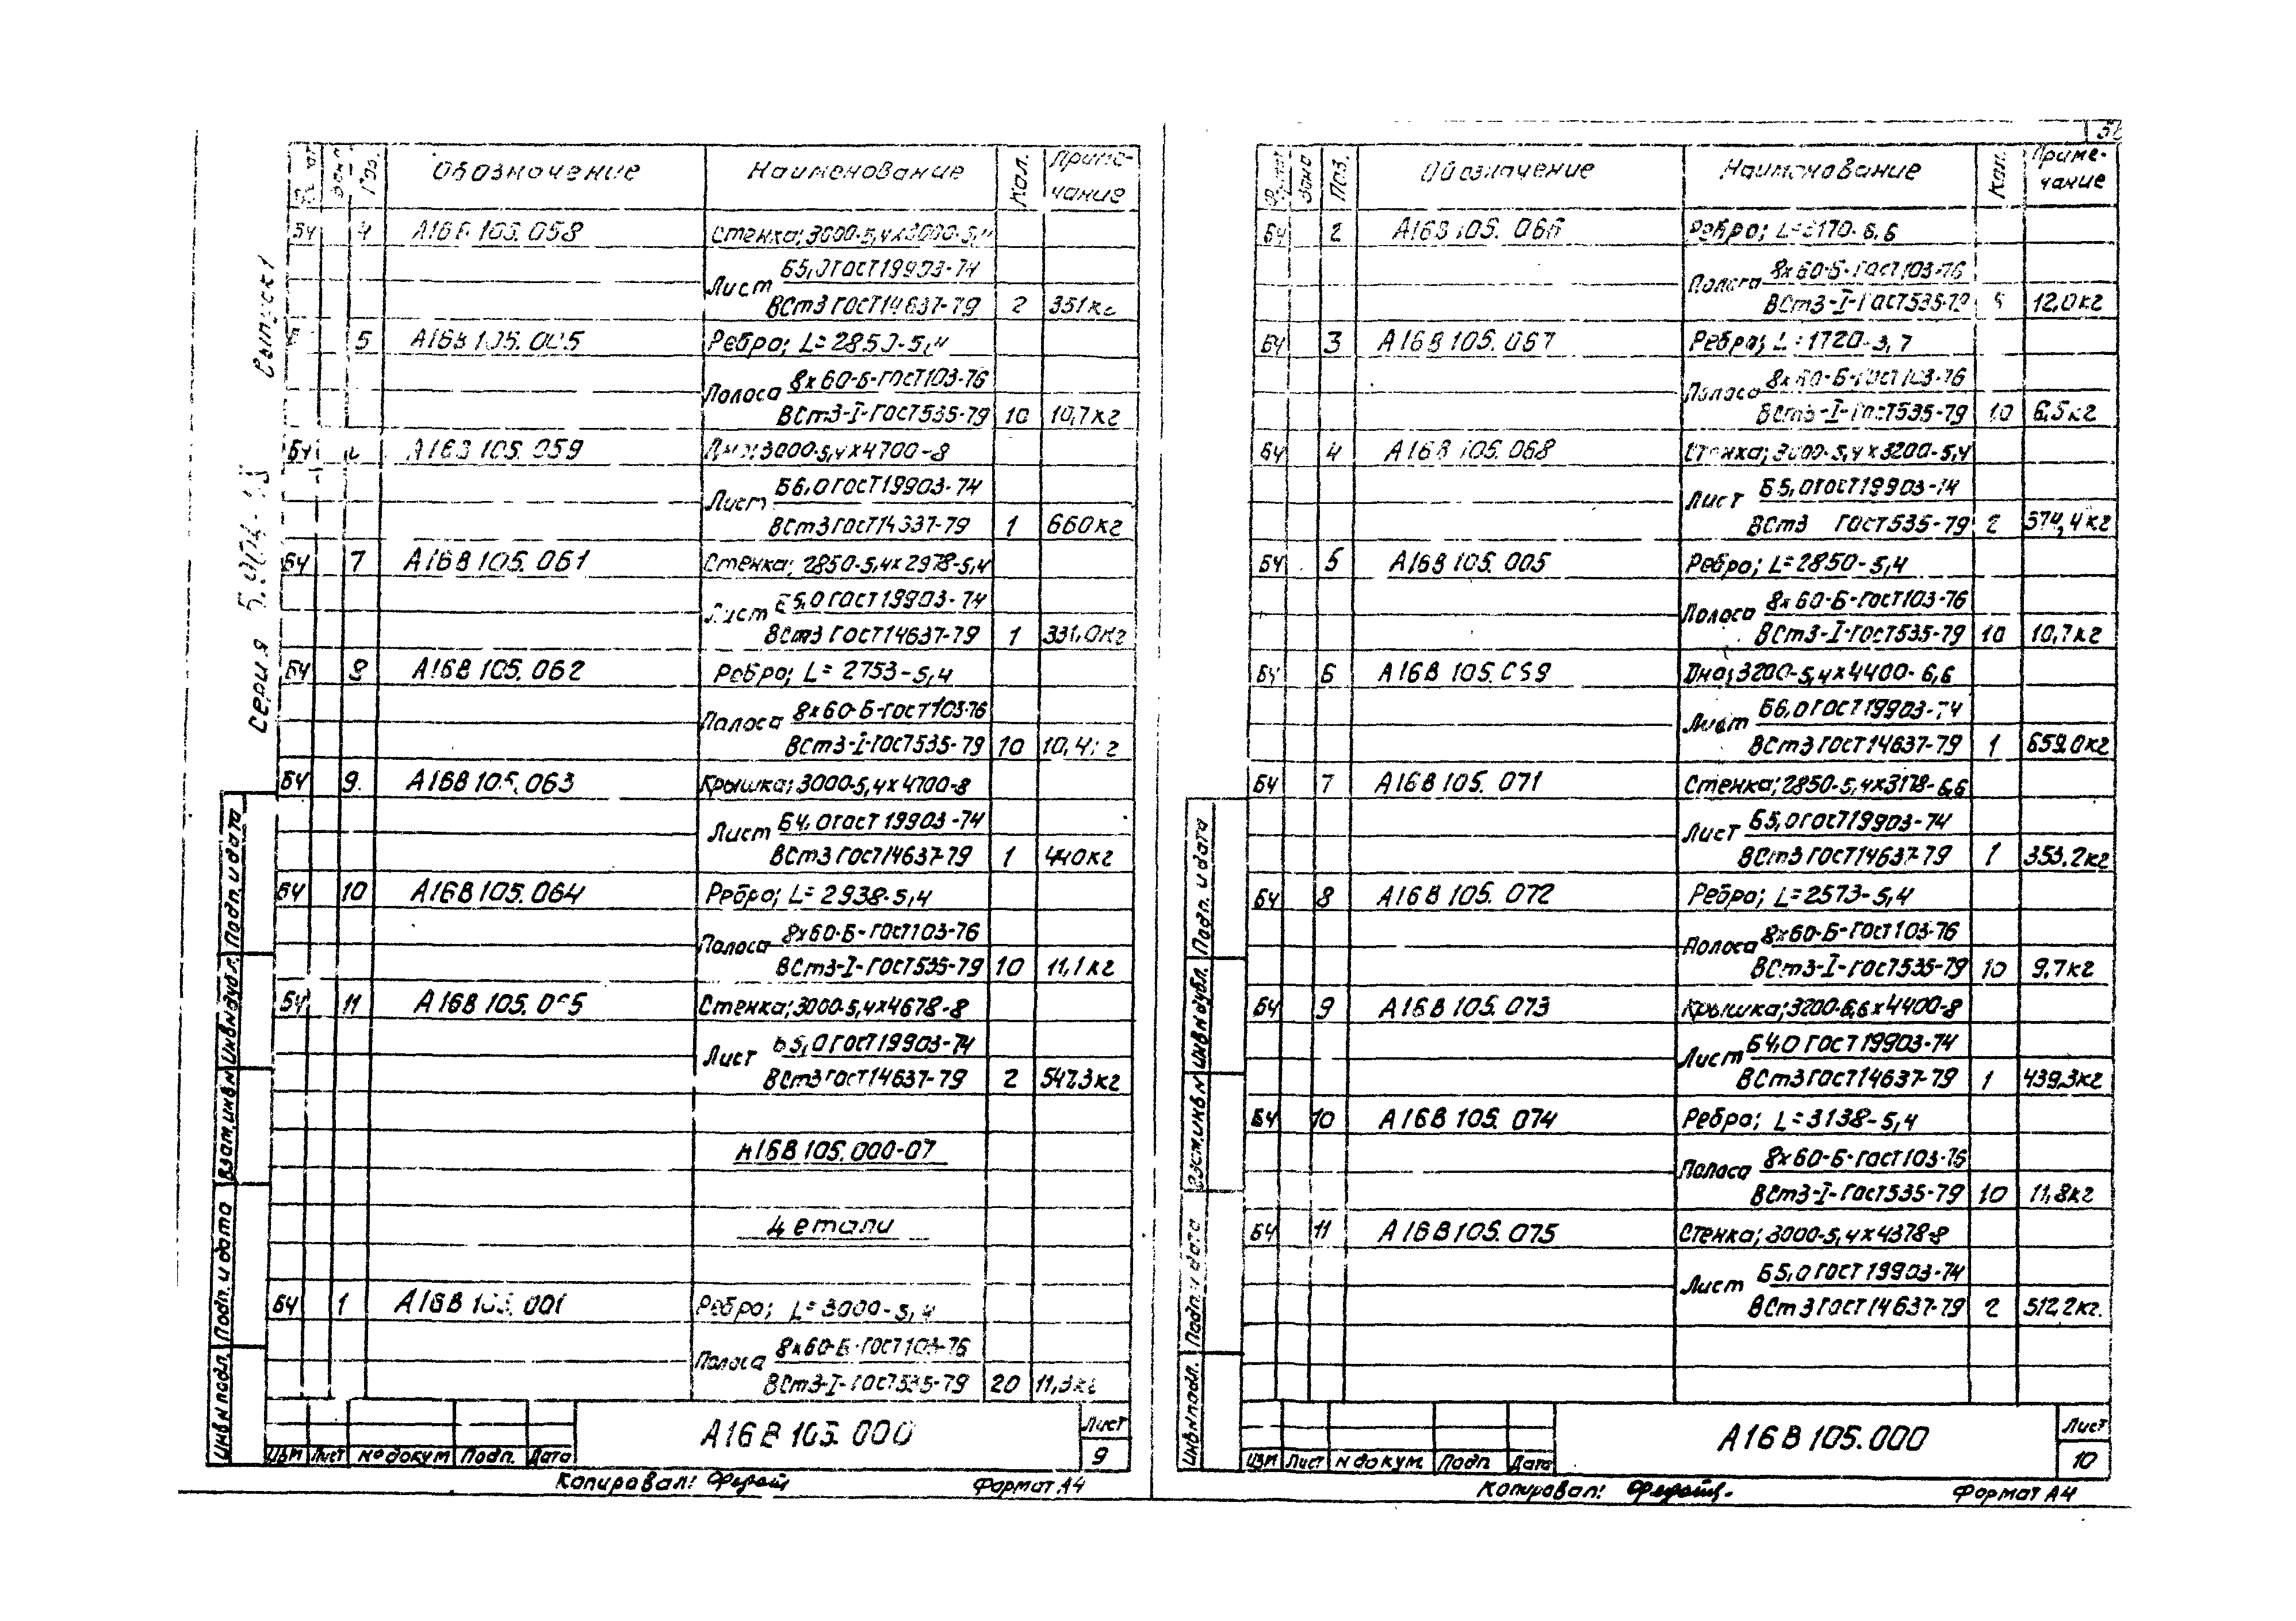 Серия 5.904-
Обозначение Наименование Кол. Примечание
БЧ 4 А16В 105.058 Стенка; 3000-5,4х3000-5,4
Б5,0 ГОСТ 19903-74
Лист
ВСт3 ГОСТ 14637-79 2 351кг
5 А16В 105.005 Ребро; L=2850-5,4
8х60-Б-ГОСТ103-76
Полоса
ВСт3-I-ГОСТ535-79 10 10,7кг
БЧ А16В 105.059 3000-5,4х4700-8
Б6,0 ГОСТ19903-74
Лист
ВСт3 ГОСТ14637-79 1 660кг
БЧ 7 А16В 105.061 Стенка; 2850-5,4х2978-5,4
Б5,0 ГОСТ 19903-74
Лист
ВСт3 ГОСТ14637-79 1 331,0кг
БЧ 8 А16В 105.062 Ребро; L=2753-5,4
8х60-Б-ГОСТ103-76
Полоса
ВСт3-I-ГОСТ535-79 10 10,4кг
БЧ 9. А16В 105.063 Крышка; 3000-5,4х4700-8
Б4,0 ГОСТ 19903-74
Лист
ВСт3 ГОСТ14637-79 1 440кг
БЧ 10 А16В 105.064 Ребро; L=2938-5,4
8х60-Б-ГОСТ103-76
Полоса
ВСт3-I-ГОСТ535-79 10 11,1кг
БЧ 11 А16В 105. Стенка; 3000-5,4х4678-8
Б5,0 ГОСТ19903-74
Лист
ВСт3 ГОСТ14637-79 2 547,3кг
А16В 105.000-07
Детали
БЧ 1 А16В 105.001 Ребро; L=3000-5,4
8х60-Б-ГОСТ103-76
Полоса
ВСт3-I-ГОСТ535-79 20 11,3кг
Инв N подл. Подп. и дата Взам. инв N Инв N дубл. Подп. и дата
А16В 105.000
Лист
9
Изм Лист № докум Подп. Дата
Копировал: Формат А4
Поз. Обозначение Наименование Кол. Примечание
БЧ 2 А16В 105.066 Ребро; L=3170-6,6
8х60-Б-ГОСТ103-76
Полоса
ВСт3-I-ГОСТ535-79 12,0кг
БЧ 3 А16В 105.067 Ребро; L=1720-3,7
8х60-Б-ГОСТ103-76
Полоса
ВСт3-I-ГОСТ535-79 10 6,5кг
БЧ 4 А16В 105.068 Стенка; 3000-5,4х3200-5,4
Б5,0 ГОСТ19903-74
Лист
ВСт3 ГОСТ535-79 2 374,4кг
БЧ 5 А16В 105.005 Ребро; L=2850-5,4
8х60-Б-ГОСТ103-76
Полоса
ВСт3-I-ГОСТ535-79 10 10,7кг
БЧ 6 А16В 105. Дно; 3200-5,4х4400-6,6
Б6,0 ГОСТ19903-74
Лист
ВСт3 ГОСТ14637-79 1 659,0кг
БЧ 7 А16В 105.071 Стенка; 2850-5,4х3178-6,6
Б5,0 ГОСТ19903-74
Лист
ВСт3 ГОСТ14637-79 1 353,2кг
БЧ 8 А16В 105.072 Ребро; L=2573-5,4
8х60-Б-ГОСТ103-76
Полоса
ВСт3-I-ГОСТ535-79 10 9,7кг
БЧ 9 А16В 105.073 Крышка; 3200-6,6х4400-8
Б4,0 ГОСТ19903-74
Лист
ВСт3 ГОСТ14637-79 1 439,3кг
БЧ 10 А16В 105.074 Ребро; L=3138-5,4
8х60-Б-ГОСТ103-76
Полоса
ВСт3-I-ГОСТ535-79 10 11,8кг
БЧ 11 А16В 105.075 Стенка; 3000-5,4х4378-8
Б5,0 ГОСТ19903-74
Лист
ВСт3 ГОСТ14637-79 2 512,2кг.
Инв N подл. Подп. и дата Взам. инв N Инв N дубл. Подп. и дата
А16В 105.000
Лист
10
Изм Лист N докум. Подп Дата
Копировал: Формат А4